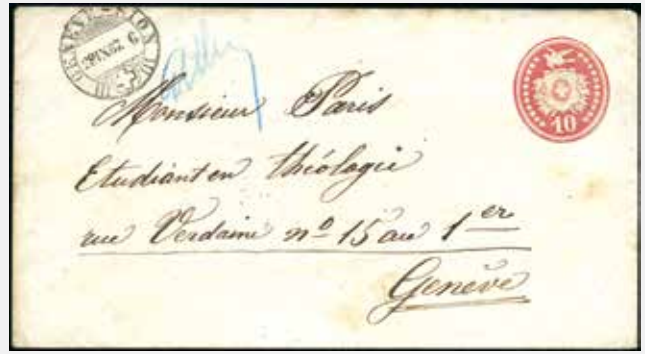 GENÈVE
10
Monsieur Paris
Etudiant en théologie
rue Verdaine nº 15 au 1er
Genève